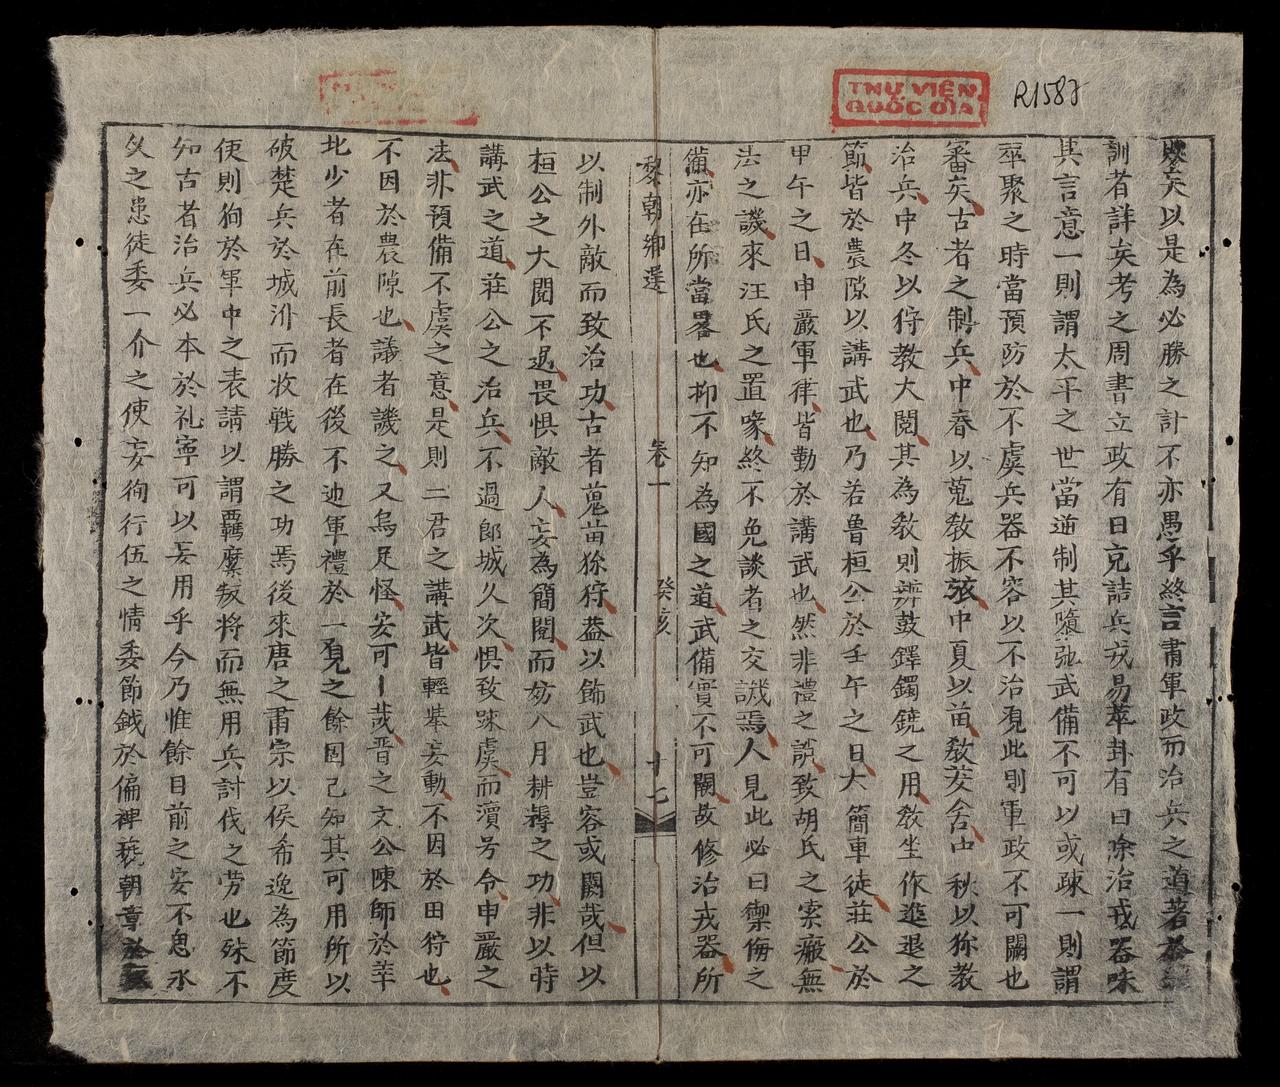 THƯ VIỆN
QUỐC GIA
R1587
矣以是為必勝之計不亦愚乎終言肅軍政而治兵之道著於
訓者詳矣考之周書立政有曰克詰戎兵易萃卦有曰除治戎器味
其言意一則謂太平之世當遖制其隳弛武備不可以或疎一則謂
萃聚之時當預防於不虞兵器不容以不治覌此則軍政不可闕也
審矣古者之制兵中春以蒐敎振弦中夏以苗敎茇舍中秋以狝教
治兵中冬以狩教大閱其為敎則辨鼓鐸鐲鐃之用敎坐作進退之
節皆於農隙以講武也乃若魯桓公於壬午之日大簡車徒莊公於
甲午之日申嚴軍律皆勤於講武也然非禮之誤致胡氏之索癥無
法之譏來汪氏之置喙終不免談者之交譏焉人見此必曰禦侮之
備亦在所當畧也抑不知為國之道武備實不可闕故修治戎器所
黎朝鄉選 卷一 癸亥 十七
以制外敵而致治功古者蒐苗狝狩葢以飾武也豈容或闕哉但以
桓公之大閱不過畏惧敵人妄為簡閱而妨八月耕耨之功非以時
講武之道莊公之治兵不過郞城久次惧致踈虞而瀆号令申嚴之
法非預備不虞之意是則二君之講武皆輕举妄動不因於田狩也
不因於農隙也議者譏之又烏足怪安可哉晋之文公陳師於莘
北少者在前長者在後不迆軍禮於一覌之餘固已知其可用所以
破楚兵於城汾而收戰勝之功焉後來唐之肅宗以侯希逸為節度
使則狥於軍中之表請以謂羈縻叛将而無用兵討伐之劳也殊不
知古者治兵必本於礼寕可以妄用乎今乃惟餘目前之安不思永
久之患徒委一介之使妄徇行伍之情委節鉞於偏裨褻朝章於